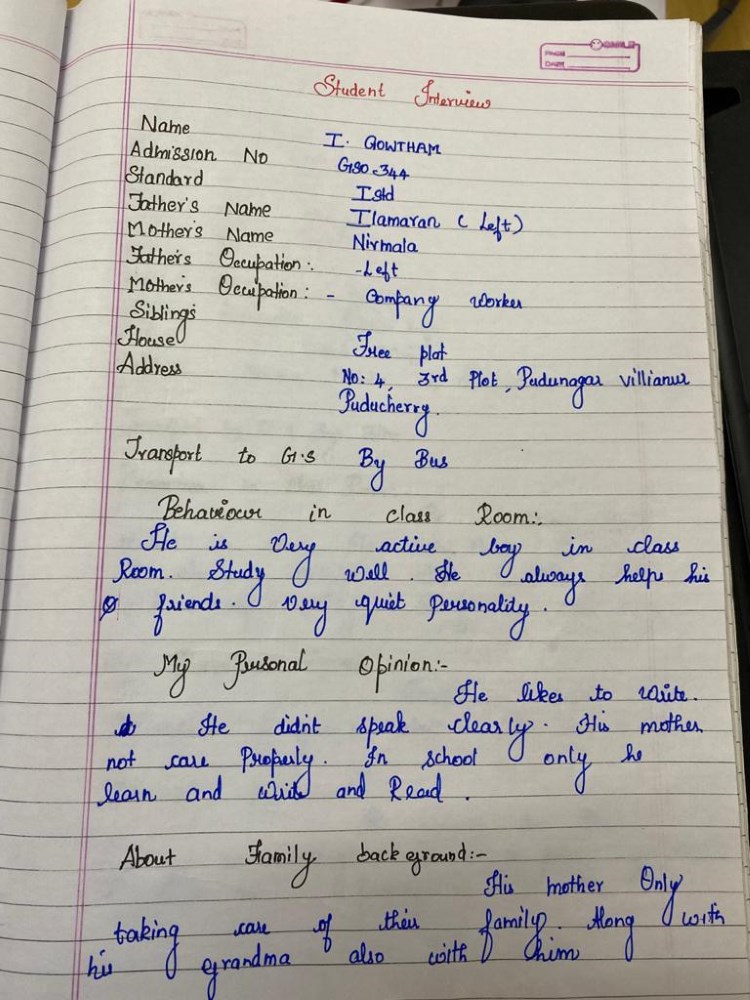 Student Interview
Name I. GOWTHAM
Admission No G180.344
Standard I std
Father's Name Ilamaran (Left)
Mother's Name Nirmala
Father's Occupation:. -Left
Mother's Occupation: - Company worker
Siblings
House Free plot
Address No: 4, 3rd Plot, Pudunagar villianur
Puducherry.
Transport to G.S By Bus
Behaviour in class Room:.
He is Very active boy in class
Room. Study well. He always helps his
friends. Very quiet Personality.
My Personal Opinion:-
He likes to write.
He didnt speak clearly. His mother
not care Properly. In school only he
learn and write and Read.
About Family back ground:-
His mother Only
taking care of their family. Along with
his grandma also with him